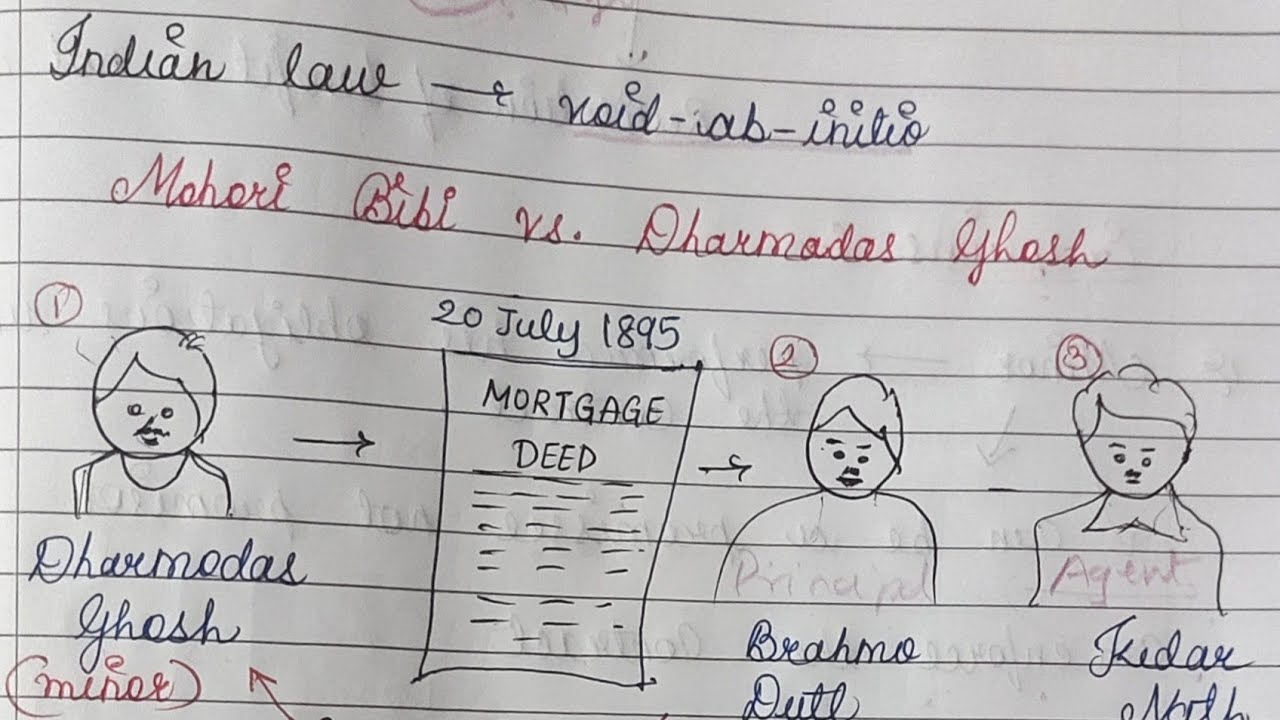 Indian law → void-ab-initio
Mohori Bibi vs. Dharmadas Ghosh
20 July 1895
1
2
3
MORTGAGE
DEED
Principal
Agent
Dharmodas
Ghosh
(minor)
Brahmo
Dutt
Kidar
Noth